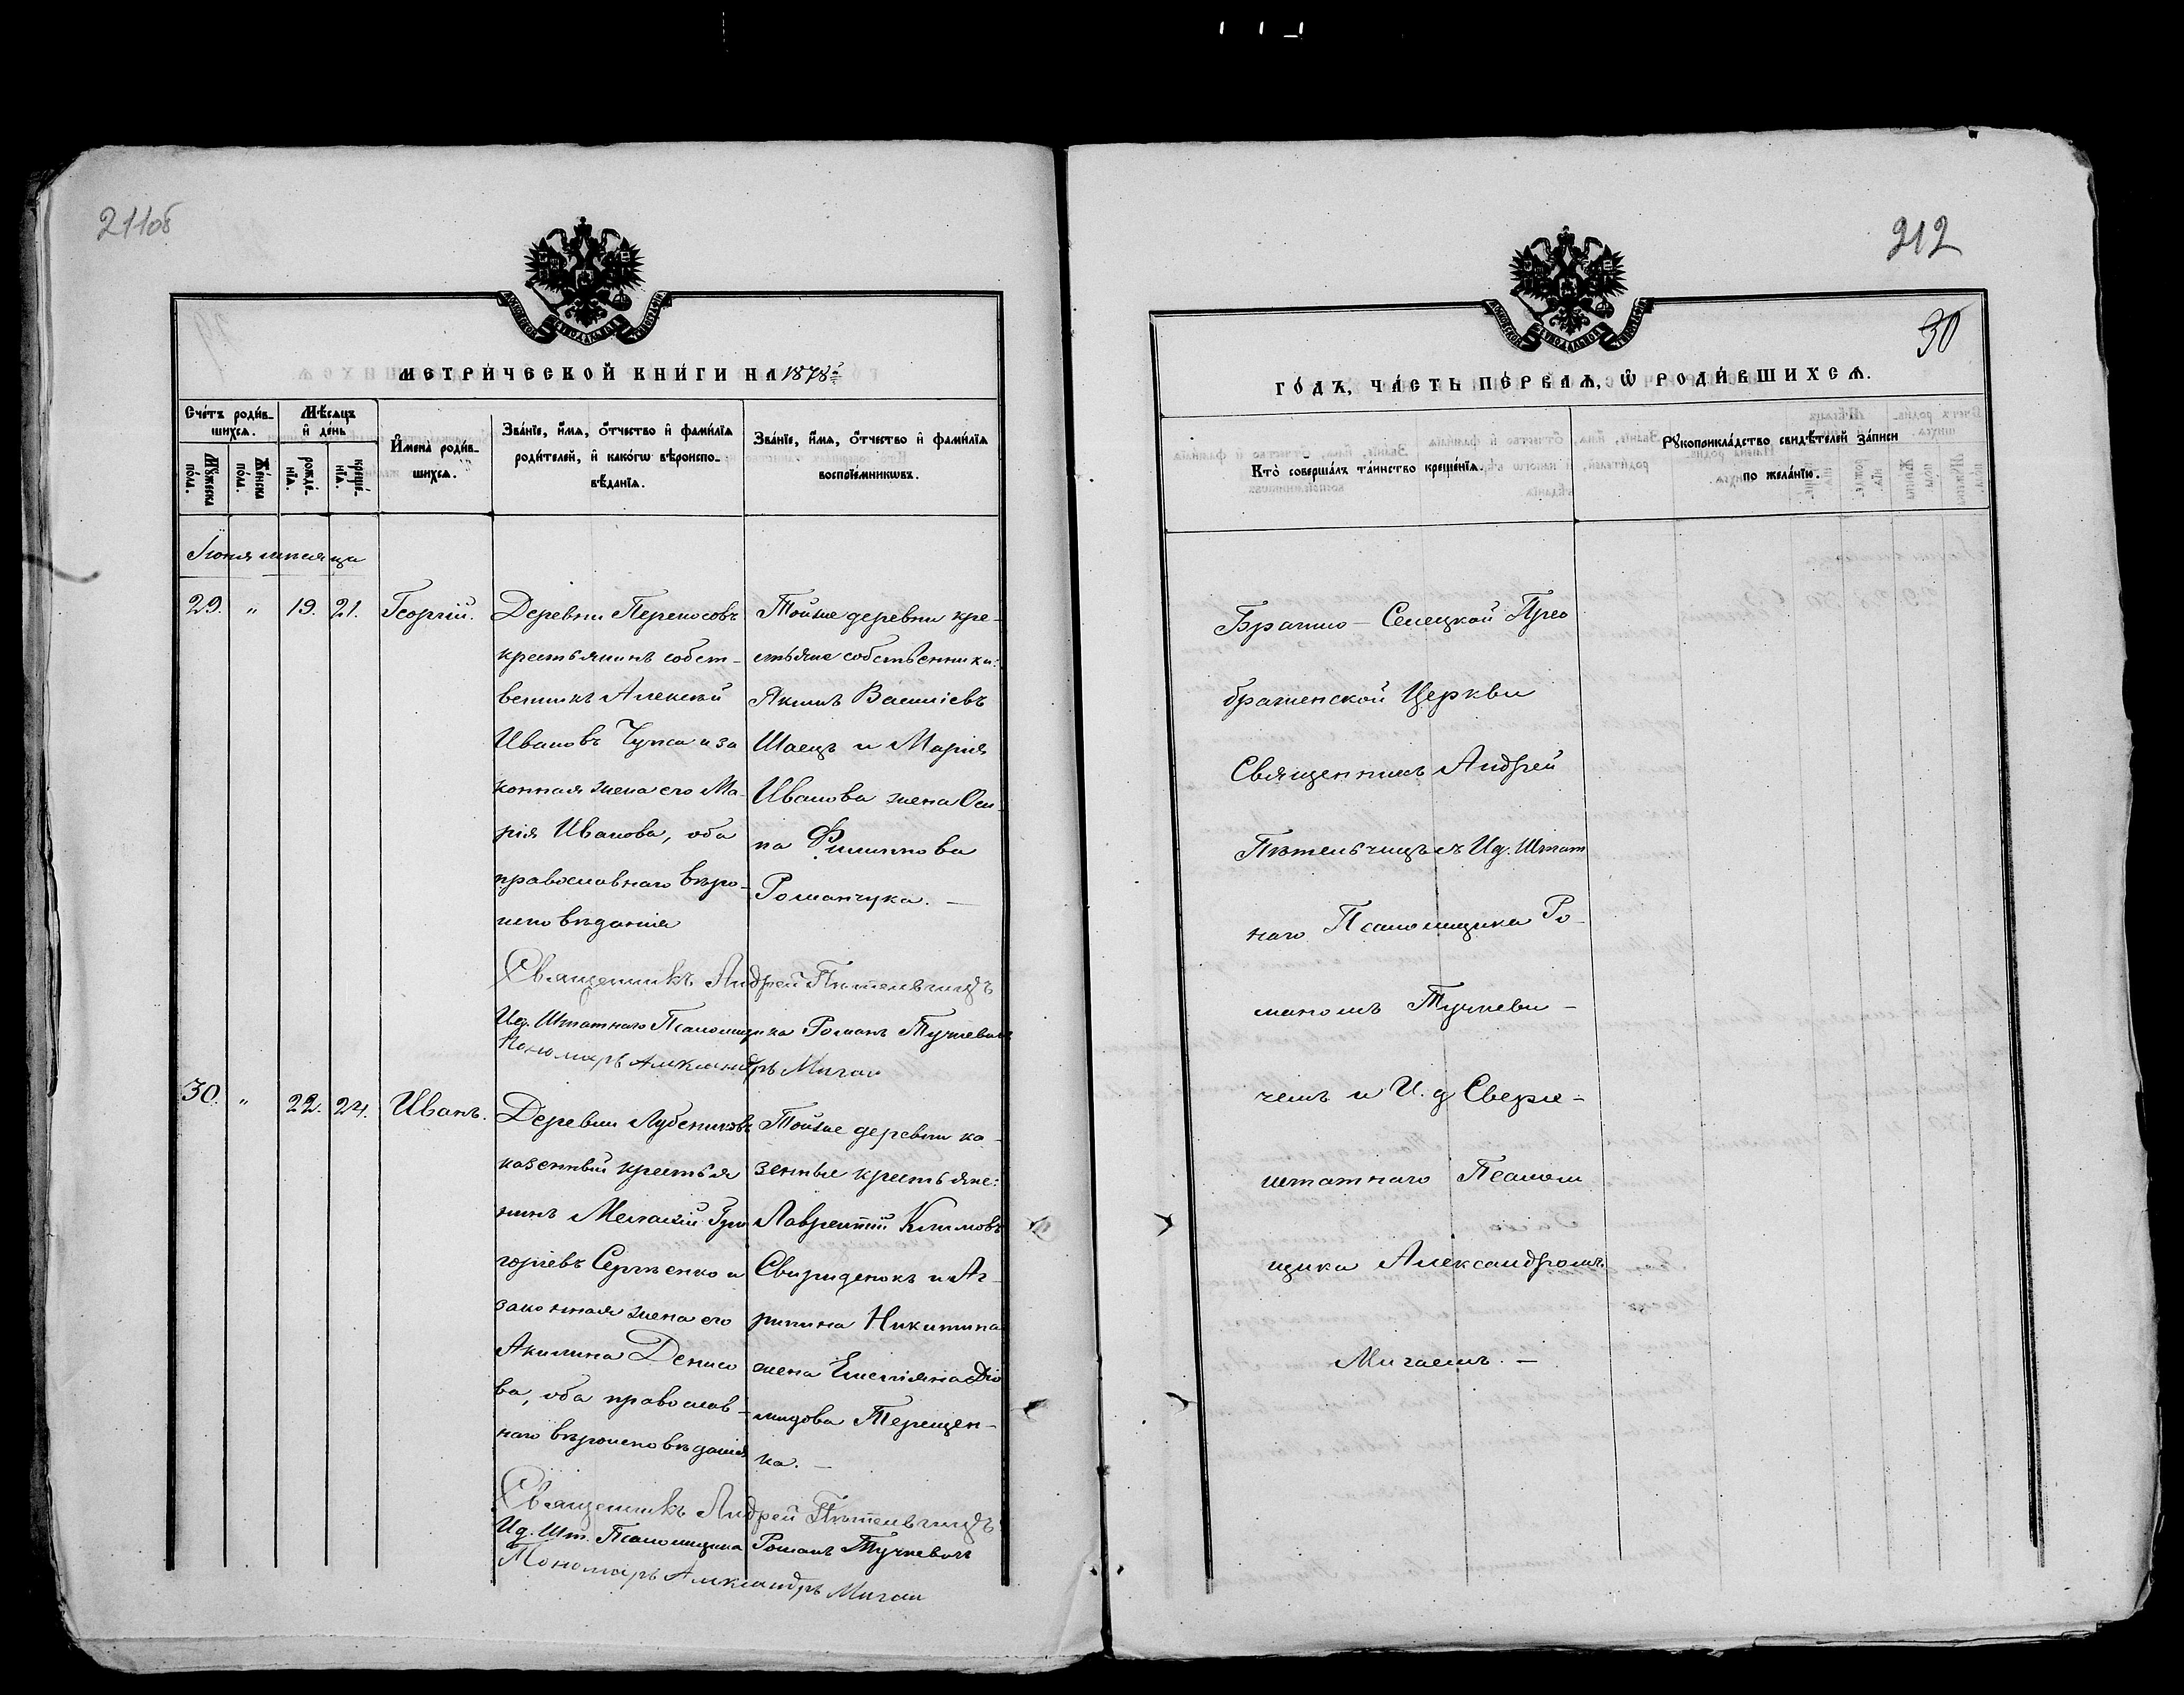 211об
МЕТРИЧЕСКОЙ КНИГИ НА 1878й
Счетъ родив-
шихся.
Мѣсяцъ
и день
Мужеска
пола.
Женска
пола.
рожде-
нія.
креще-
нія.
Имена родив-
шихся.
Званіе, имя, отчество и фамилія
родителей, и какого вѣроиспо-
вѣданія.
Званіе, имя, отчество и фамилія
воспріемниковъ.
Іюня мѣсяца
29. " 19. 21. Георгій.
Деревни
крестьянинъ собст-
венникъ Алексѣй
Ивановъ и за
конная жена его Ма-
рія Иванова, оба
православнаго вѣро-
исповѣданія
Тойже деревни кре-
стьяне собственники:
Якимъ Василіевъ
Шаецъ и Марія
Иванова жена Оси-
па Филипова
Романчука. —
Священникъ Андрей
Ид. Штатнаго Псаломщика Романъ
Пономарь Александръ Мигай
30. " 22. 24. Иванъ.
Деревни
казенный крестья
нинъ Гри
горіевъ Сергѣенко и
законная жена его
Акилина Денисо
ва, оба православ-
наго вѣроисповѣданія
Тойже деревни ка-
зенные крестьяне:
Лаврентій Климовъ
Свириденокъ и Аг-
рипина Никитина
жена Емеліяна Діо
мидова Терещен-
ка. —
Священникъ Андрей
Ид. Шт. Псаломщика Романъ
Пономарь Александръ Мигай
212
30
ГОДЪ, ЧАСТЬ ПЕРВАЯ, Ѡ РОДИВШИХСЯ.
Кто совершалъ таинство крещенія.
Рукоприкладство свидѣтелей записи
по желанію.
Селецкой Прео
браженской Церкви
Священникъ Андрей
съ Ид. Штат
наго Псаломщика Ро-
маномъ
чемъ и И. д Сверх-
штатнаго Псалом
щика Александромъ
Мигаемъ. —